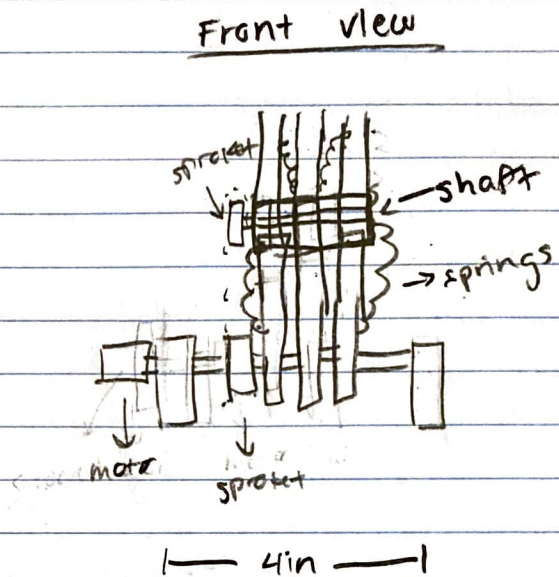 Front view
sproket
shaft
springs
motor
sproket
4in